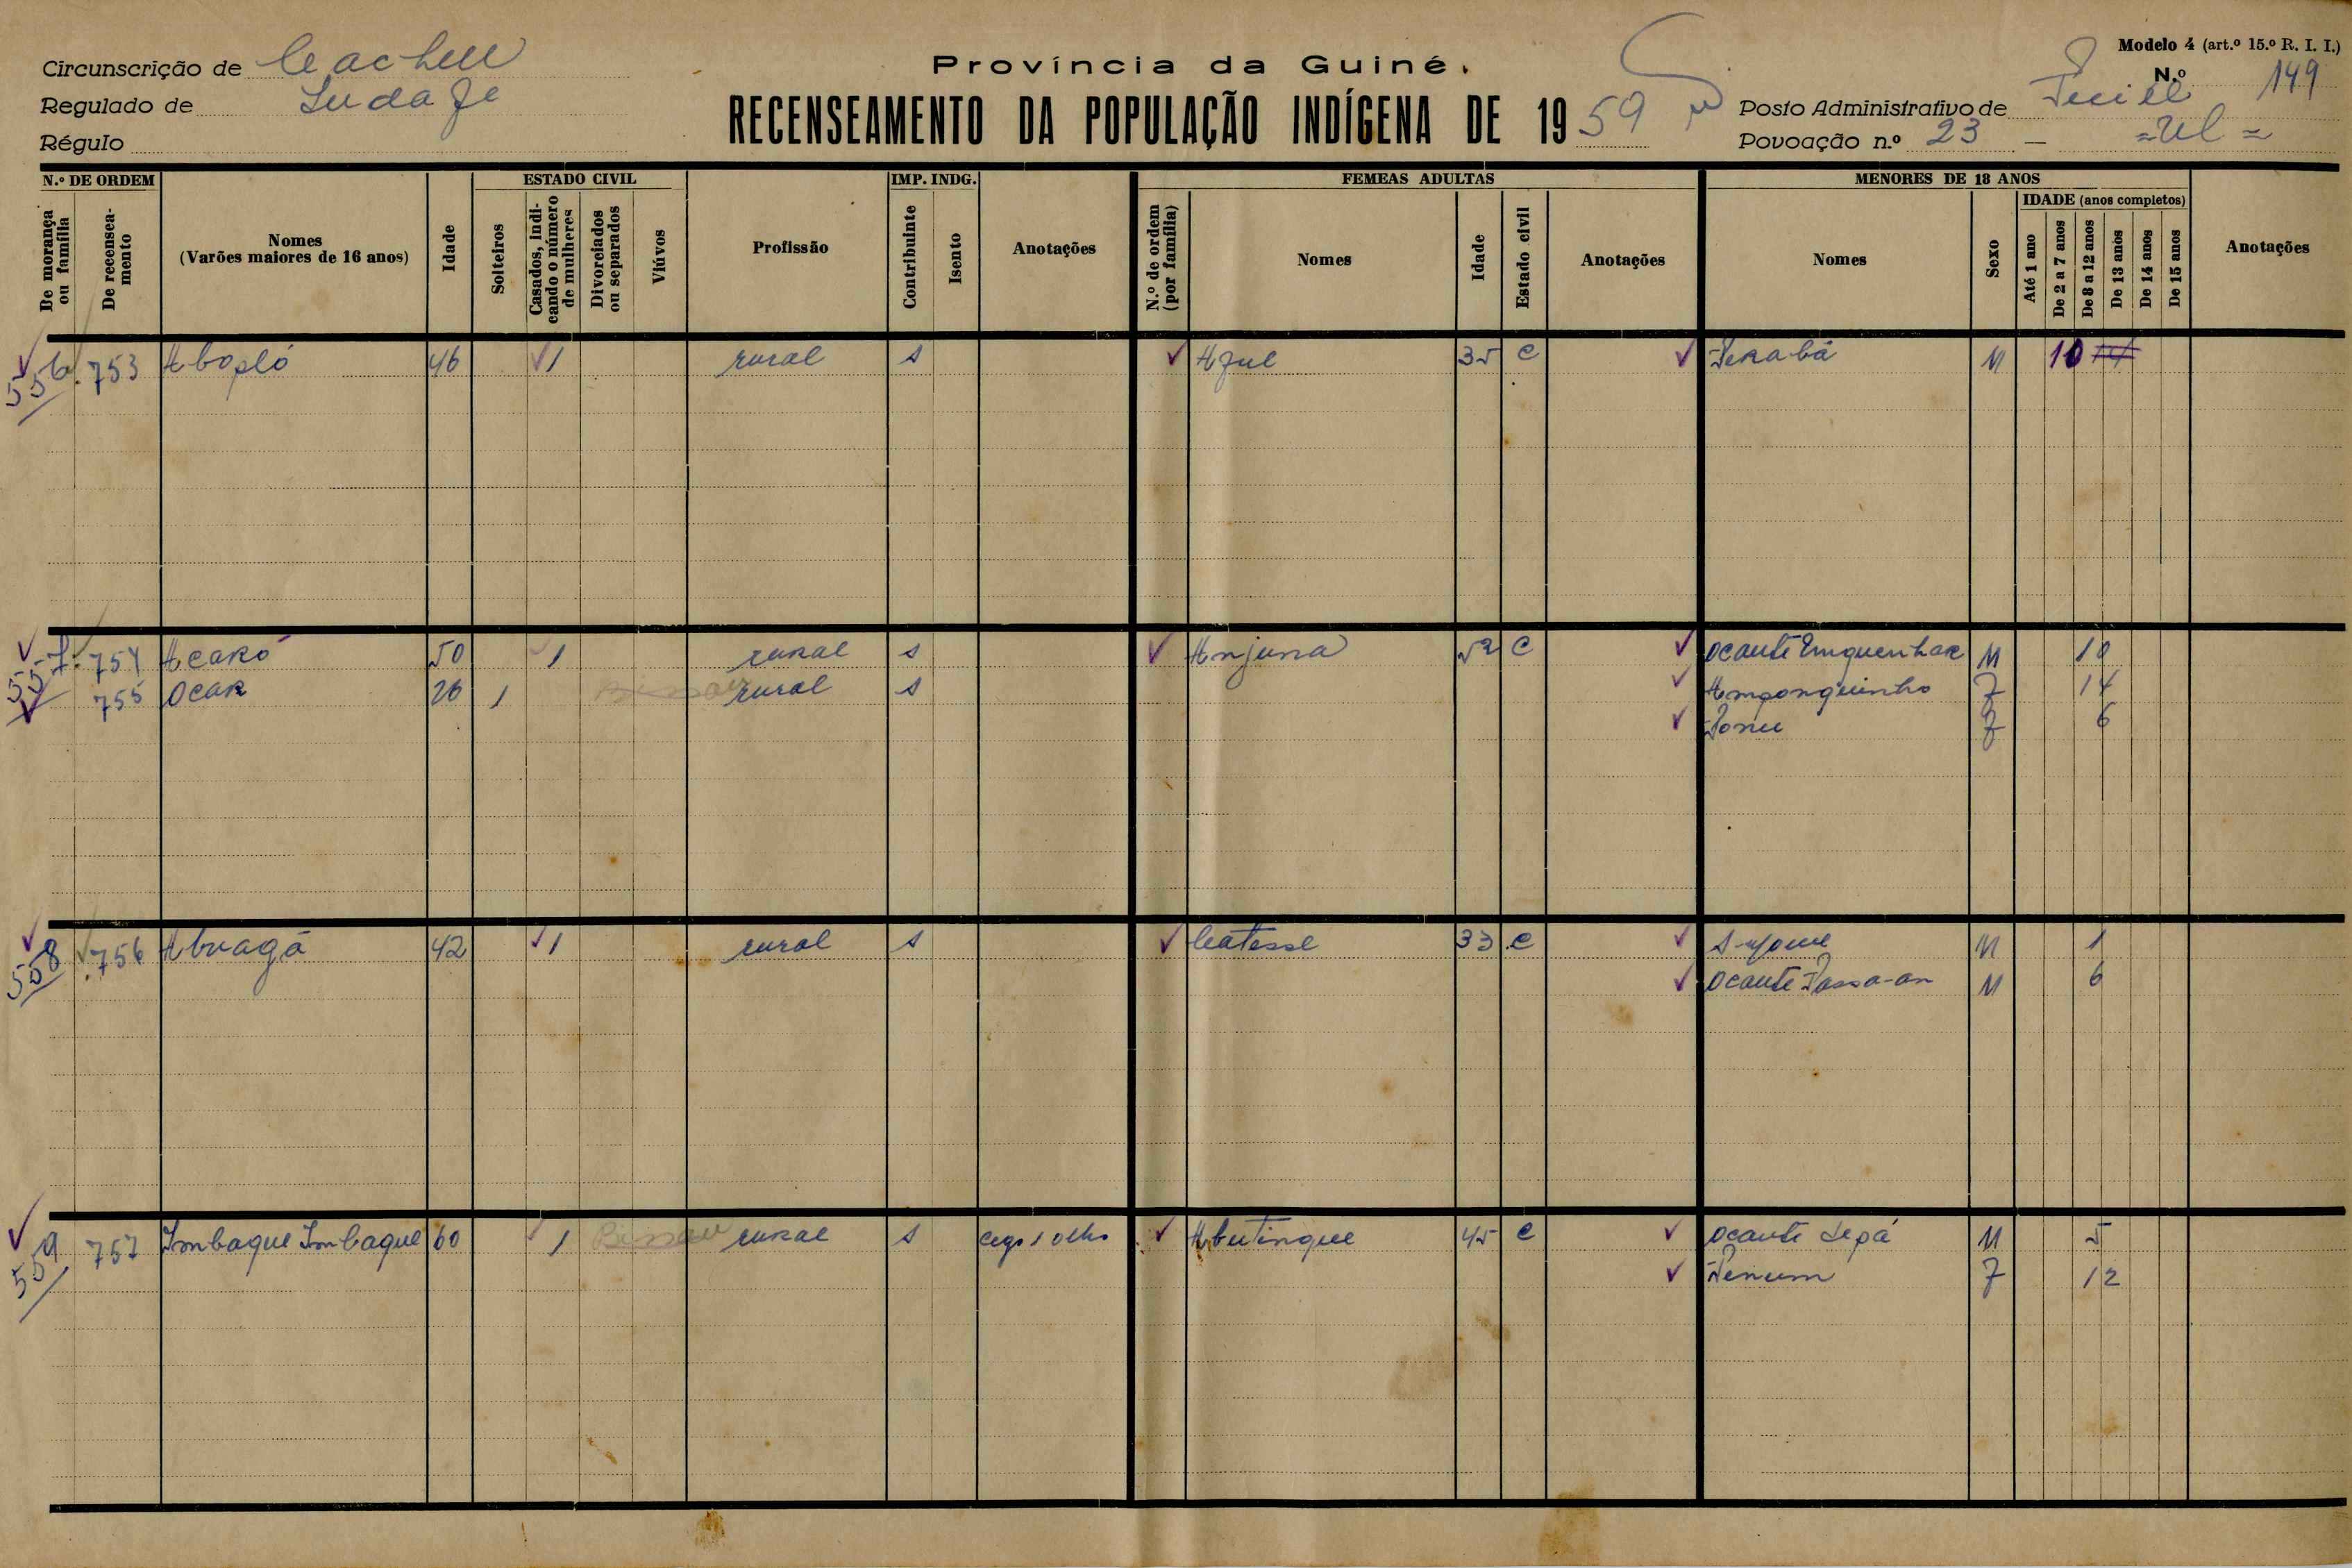 Modelo 4 (art.º 15.º R. I. I.)
Província da Guiné.
Circunscrição de Cacheu
N.º 149
Regulado de
RECENSEAMENTO DA POPULAÇÃO INDÍGENA DE 1959
Posto Administrativo de
Régulo
Povoação n.º 23 — =Ul=
N.º DE ORDEM ESTADO CIVIL IMP. INDG. FEMEAS ADULTAS MENORES DE 18 ANOS
IDADE (anos completos)
De morança ou família
De recenseamento
Nomes
(Varões maiores de 16 anos)
Idade
Solteiros
Casados, indicando o número de mulheres
Divorciados ou separados
Viúvos
Profissão
Contribuinte
Isento
Anotações
N.º de ordem (por família)
Nomes
Idade
Estado civil
Anotações
Nomes
Sexo
Até 1 ano
De 2 a 7 anos
De 8 a 12 anos
De 13 anos
De 14 anos
De 15 anos
Anotações
556 753 Abopló 46 1 rural s Azul 35 C Jerabá M 10
557 754 Acaró 50 1 rural s Anjuna 52 C Ocante Emquenhar M 10
755 Ocar 26 1 Bissau rural s Amponquinho F 14
F 6
558 756 42 1 rural s Catesse 33 C M 1
Ocante M 6
559 757 Imbaque Imbaque 60 1 Bissau rural s cego 1 olho Abutinque 45 C Ocante Sepá M 5
F 12